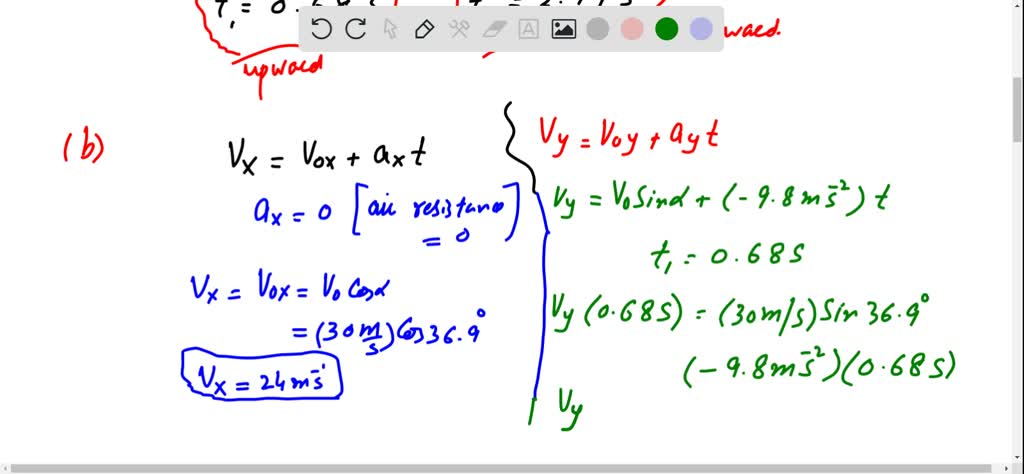 t₁ = 0.68
upward
ward.
(b)
Vx = Vox + axt
ax = 0 [air resistance = 0]
Vx = Vox = Vo Cosα
= (30 m/s) Cos 36.9°
Vx = 24 ms⁻¹
Vy = Voy + ayt
Vy = Vo Sinα + (-9.8 ms⁻²) t
t₁ = 0.68 s
Vy (0.68 s) = (30 m/s) Sin 36.9°
(-9.8 ms⁻²)(0.68 s)
Vy